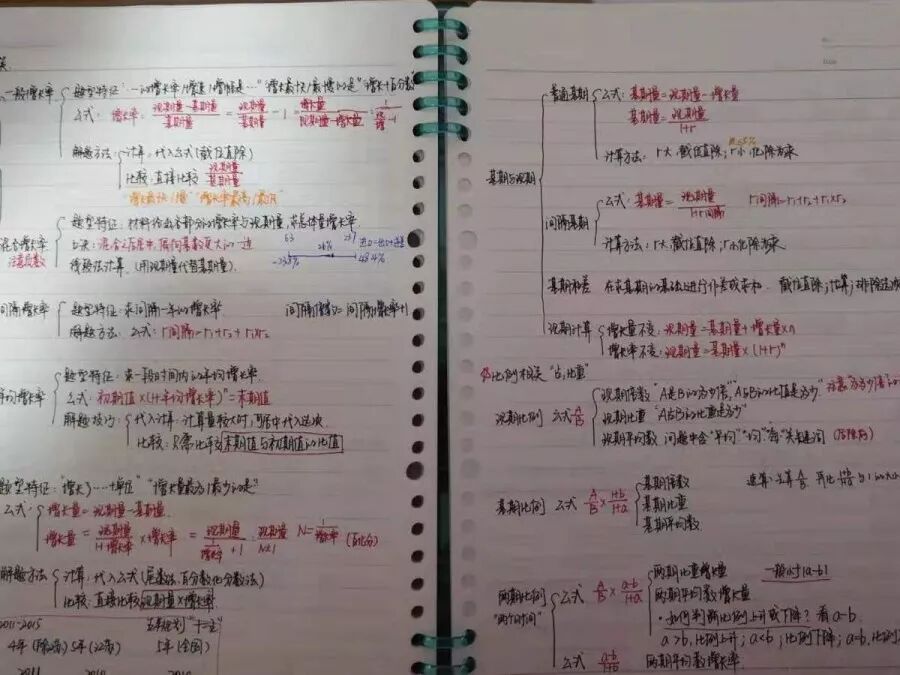 一般增长率
题型特征：…的增长率/增速/增幅是…"增长最快/最慢的是""增长+百分数"
公式：增长率=现期量-基期量/基期量=现期量/基期量-1=增长量/现期量-增长量
解题方法
计算：代入公式(截位直除)
比较：直接比较 现期量/基期量
混合增长率
题型特征：材料给出各部分的增长率与现期量，求总体量增长率
线段法计算．(用现期量代替基期量)
间隔增长率
题型特征：求间隔一年的增长率
间隔倍数=间隔增长率+1
解题方法：公式：r间隔=r₁+r₂+r₁×r₂
年均增长率
题型特征：求一段时间内的年均增长率．
公式：初期值×(1+年均增长率)ⁿ=末期值
解题技巧
代入计算：计算量较大时，可居中代入递次
比较：只需比较末期值与初期值的比值
题型特征："增长了……+单位" "增长量最多/最少的是"
公式：
增长量=现期量-基期量
增长量=现期量/1+增长率×增长率=现期量/1/增长率+1 现期量/N+1 N=1/增长率(百化分)
解题方法
计算：代入公式(尾数法、百分数化分数法)
比较：直接比较现期量×增长率
2011-2015 五年规划"十二五"
5年(全国)
基期与现期
普通基期
公式：基期量=现期量-增长量
基期量=现期量/1+r
计算方法：r大，截位直除；r小，化除为乘
间隔基期
公式：基期量=现期量/1+r间隔 r间隔=r₁+r₂+r₁×r₂
计算方法：r大，截位直除；r小，化除为乘
基期和差 在求基期的基础上进行作差或求和．截位直除；估算；排除选项
现期计算
增长量不变：现期量=基期量+增长量×n
增长率不变：现期量=基期量×(1+r)ⁿ
比例相关 "占，比重"
现期比例 公式A/B
现期倍数 "A是B的多少倍"，"A与B的比值是多少"
现期比重 "A占B的比重是多少"
现期平均数 问题中含"平均""均""每"关键词
基期比例 公式 A/B×1+b/1+a
基期倍数
基期比重
基期平均数
两期比例
"两个时间"
公式 A/B×a-b/1+a
两期比重增长量
两期平均数增长量
·如何判断比例上升或下降？看a-b
a>b，比例上升；a<b，比例下降；a=b，比例
公式 a-b/1+b 两期平均数增长率